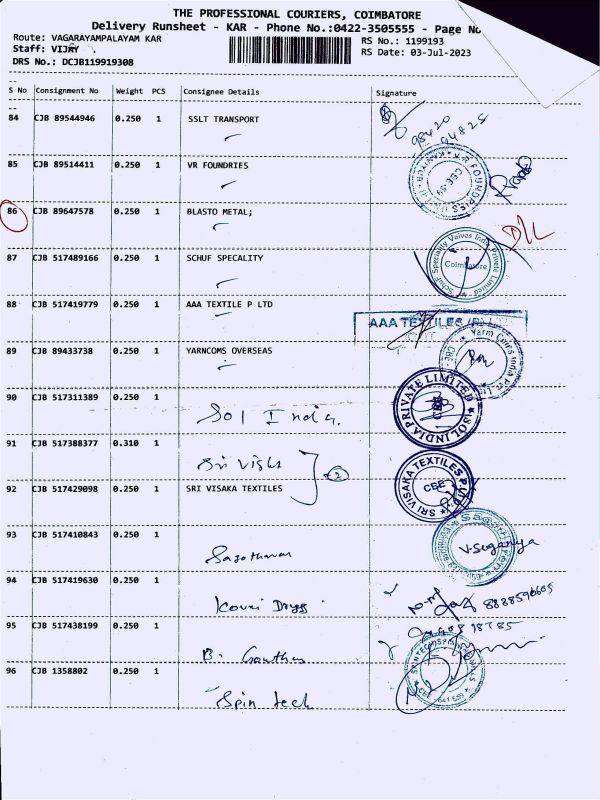 THE PROFESSIONAL COURIERS, COIMBATORE
Delivery Runsheet - KAR - Phone No.:0422-3505555 - Page No
Route: VAGARAYAMPALAYAM KAR
RS No.: 1199193
Staff: VIJAY
RS Date: 03-Jul-2023
DRS No.: DCJB119919308
S No Consignment No Weight PCS Consignee Details Signature
84 CJB 89544946 0.250 1 SSLT TRANSPORT
98420 94825
85 CJB 89514411 0.250 1 VR FOUNDRIES
86 CJB 89647578 0.250 1 BLASTO METAL;
87 CJB 517489166 0.250 1 SCHUF SPECALITY
Schuf Speciality Valves India Private Limited
Coimbatore
88 CJB 517419779 0.250 1 AAA TEXTILE P LTD
AAA TEXTILES (P)
89 CJB 89433738 0.250 1 YARNCOMS OVERSEAS
90 CJB 517311389 0.250 1 Sol India.
SOL INDIA PRIVATE LIMITED
91 CJB 517388377 0.310 1 Sri Viska
2
92 CJB 517429098 0.250 1 SRI VISAKA TEXTILES
SRI VISAKA TEXTILES P LTD
CBE
93 CJB 517410843 0.250 1
V-Suganya
94 CJB 517419630 0.250 1 Kovai Drygs
95 CJB 517438199 0.250 1 B. Gowtham
96 CJB 1358802 0.250 1 Spin tech